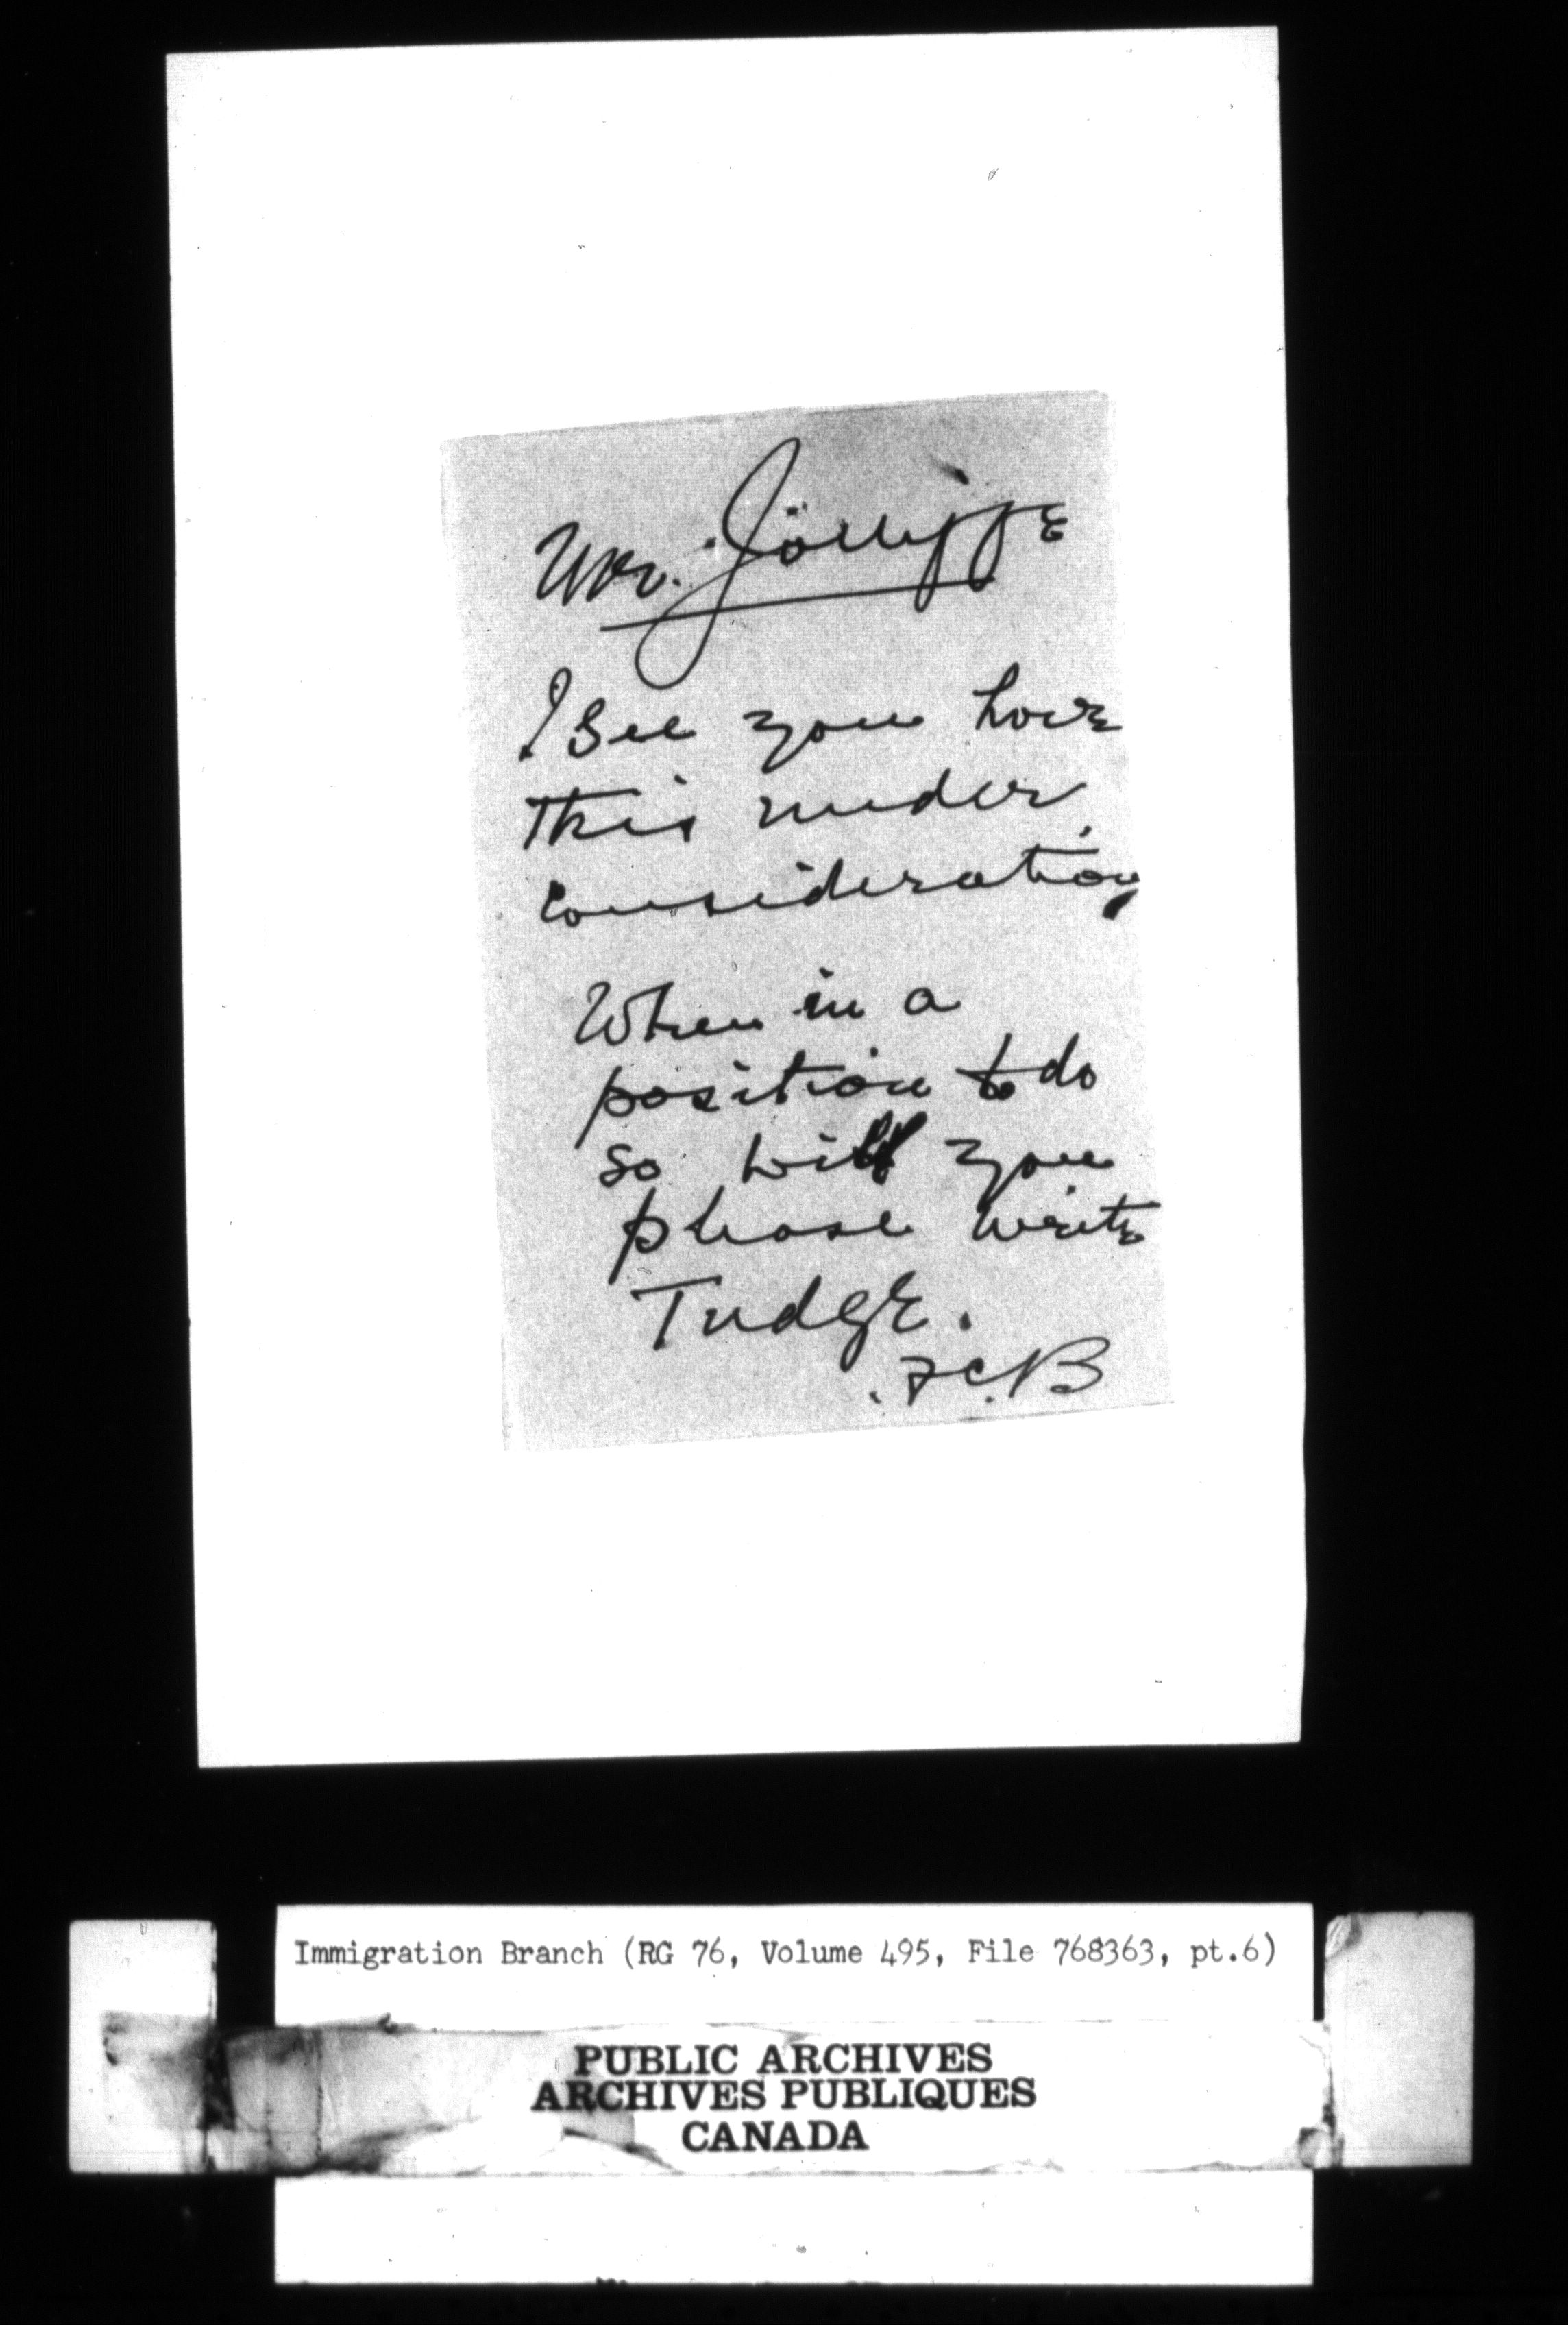 Mr. Jolliffe
I see you have
this under
consideration
When in a
position to do
so will you
please write
Tudge.
F.C.B
Immigration Branch (RG 76, Volume 495, File 768363, pt.6)
PUBLIC ARCHIVES
ARCHIVES PUBLIQUES
CANADA